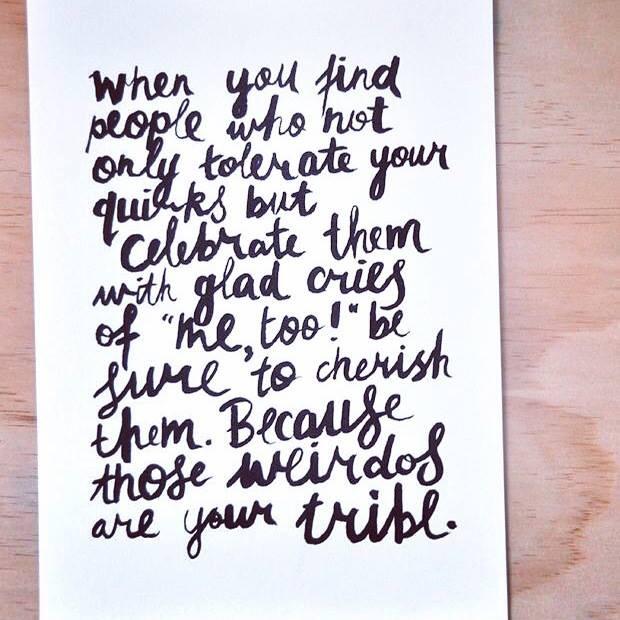 When you find
people who not
only tolerate your
quirks but
celebrate them
with glad cries
of "me, too!" be
sure to cherish
them. Because
those weirdos
are your tribe.